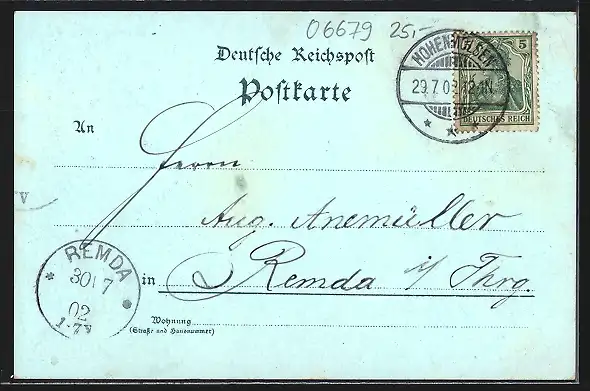 06679 25,-
Deutsche Reichspost
Postkarte
HOHENMÖLSEN
29.7.02
5
DEUTSCHES REICH
An
Herrn
Aug. Anemüller
in Remda i/ Thrg.
Wohnung
(Straße und Hausnummer)
REMDA
30 7
02
1-7V
V